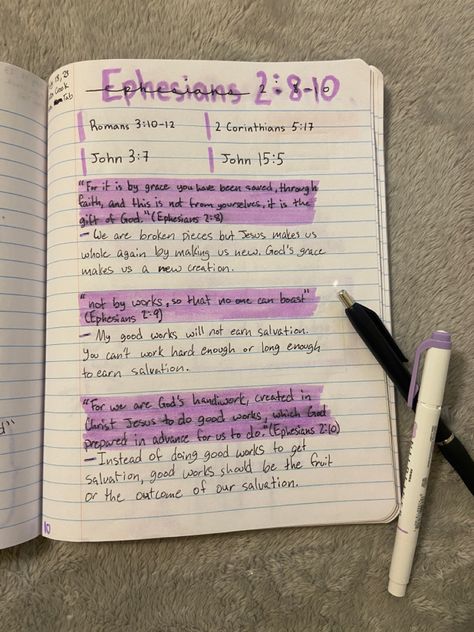 Ephesians 2:8-10
Romans 3:10-12
2 Corinthians 5:17
John 3:7
John 15:5
"For it is by grace you have been saved, through
faith, and this is not from yourselves, it is the
gift of God." (Ephesians 2:8)
- We are broken pieces but Jesus makes us
whole again by making us new. God's grace
makes us a new creation.
"not by works, so that no one can boast"
(Ephesians 2:9)
- My good works will not earn salvation.
You can't work hard enough or long enough
to earn salvation.
"For we are God's handiwork, created in
Christ Jesus to do good works, which God
prepared in advance for us to do." (Ephesians 2:10)
- Instead of doing good works to get
salvation, good works should be the fruit
or the outcome of our salvation.
10